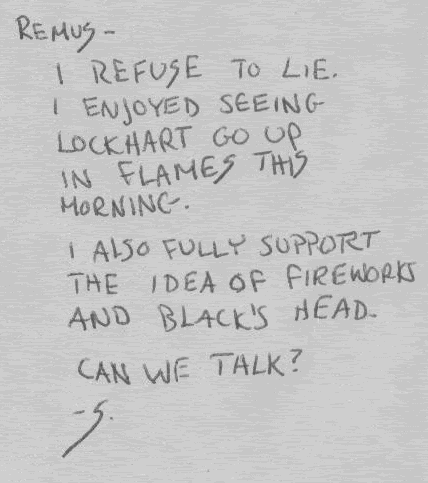 REMUS-
I REFUSE TO LIE.
I ENJOYED SEEING
LOCKHART GO UP
IN FLAMES THIS
MORNING.
I ALSO FULLY SUPPORT
THE IDEA OF FIREWORKS
AND BLACK'S HEAD.
CAN WE TALK?
-S.